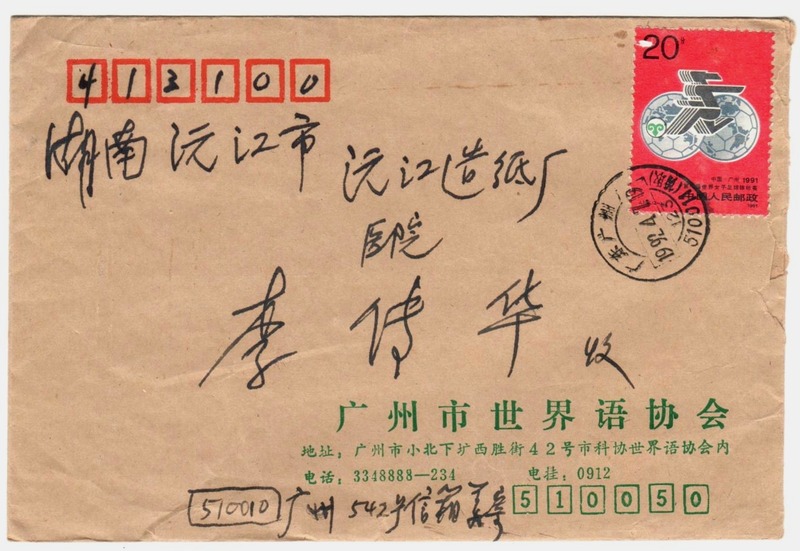 413100
20分
湖南沅江市
沅江造纸厂
医院
中国·广州 1991
中国人民邮政
1992.4
510014
广东广州
李传华 收
广州市世界语协会
地址：广州市小北下圹西胜街42号市科协世界语协会内
电话：3348888—234 电挂：0912
510010 广州 542号信箱
510050